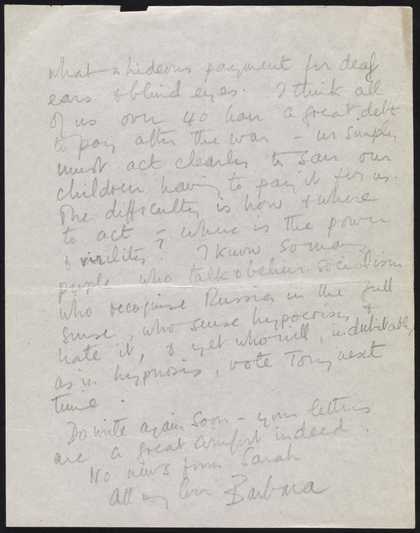 what a hideous payment for deaf
ears & blind eyes. I think all
of us over 40 have a great debt
to pay after the war – we simply
must act clearly to save our
children having to pay it for us.
The difficulty is how & where
to act – where is the power
& virility? I know so many
people who talk & believe socialism
who recognise Russia in the full
sense, who sense hypocrisy &
hate it, & yet who will, indubitably,
as in hypnosis, vote Tory next
time.
Do write again soon – your letters
are a great comfort indeed.
No news from Sarah
All my love Barbara